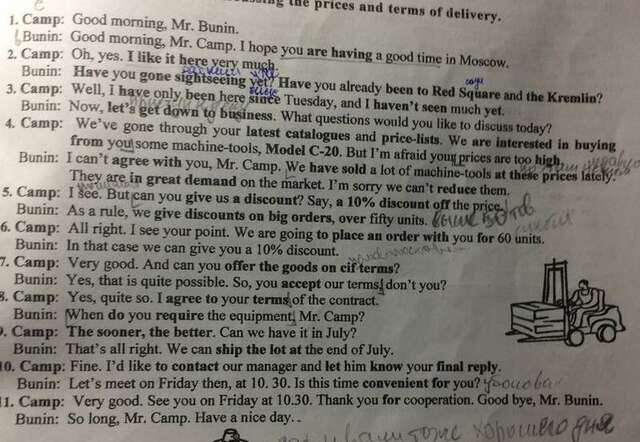 the prices and terms of delivery.
1. Camp: Good morning, Mr. Bunin.
Bunin: Good morning, Mr. Camp. I hope you are having a good time in Moscow.
2. Camp: Oh, yes. I like it here very much.
Bunin: Have you gone sightseeing yet? Have you already been to Red Square and the Kremlin?
3. Camp: Well, I have only been here since Tuesday, and I haven't seen much yet.
Bunin: Now, let's get down to business. What questions would you like to discuss today?
4. Camp: We've gone through your latest catalogues and price-lists. We are interested in buying
from you some machine-tools, Model C-20. But I'm afraid your prices are too high.
Bunin: I can't agree with you, Mr. Camp. We have sold a lot of machine-tools at these prices lately.
They are in great demand on the market. I'm sorry we can't reduce them.
5. Camp: I see. But can you give us a discount? Say, a 10% discount off the price.
Bunin: As a rule, we give discounts on big orders, over fifty units.
6. Camp: All right. I see your point. We are going to place an order with you for 60 units.
Bunin: In that case we can give you a 10% discount.
7. Camp: Very good. And can you offer the goods on cif terms?
Bunin: Yes, that is quite possible. So, you accept our terms, don't you?
8. Camp: Yes, quite so. I agree to your terms of the contract.
Bunin: When do you require the equipment, Mr. Camp?
9. Camp: The sooner, the better. Can we have it in July?
Bunin: That's all right. We can ship the lot at the end of July.
10. Camp: Fine. I'd like to contact our manager and let him know your final reply.
Bunin: Let's meet on Friday then, at 10. 30. Is this time convenient for you?
11. Camp: Very good. See you on Friday at 10.30. Thank you for cooperation. Good bye, Mr. Bunin.
Bunin: So long, Mr. Camp. Have a nice day..